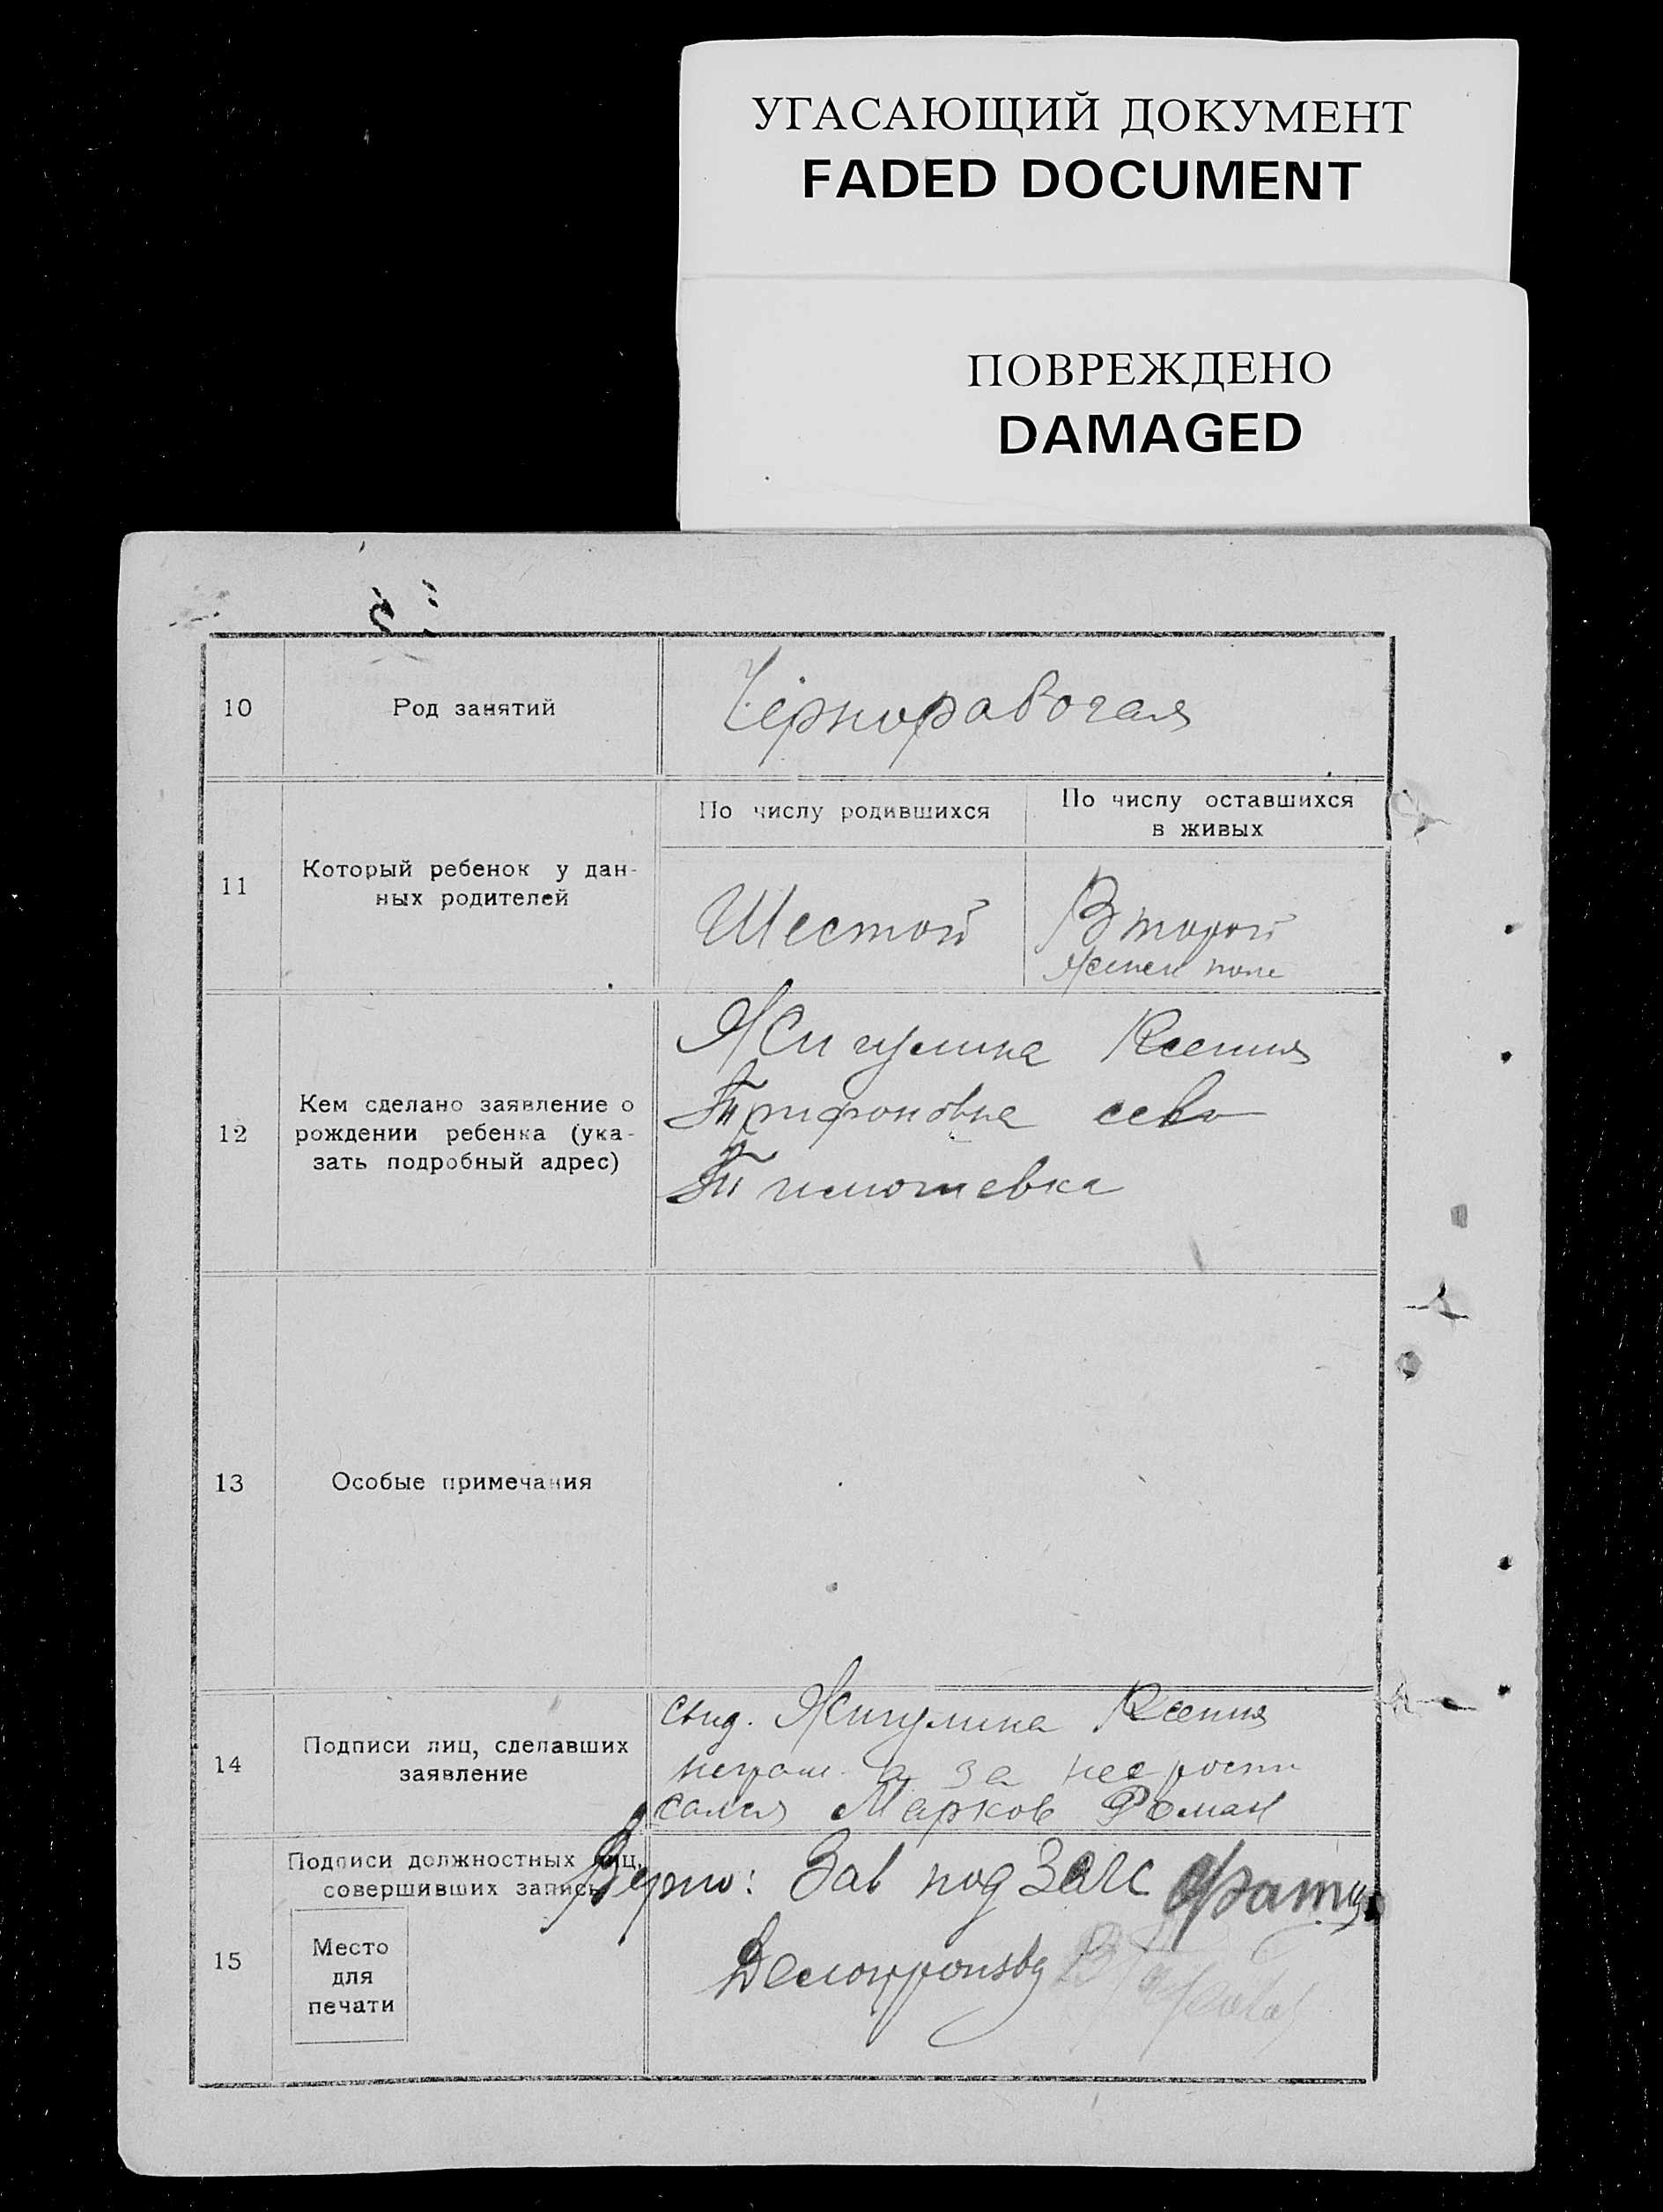 УГАСАЮЩИЙ ДОКУМЕНТ
FADED DOCUMENT
ПОВРЕЖДЕНО
DAMAGED
10
Род занятий
Чернорабочая
11
Который ребенок у дан-
ных родителей
По числу родившихся
По числу оставшихся
в живых
Шестой
Второй
12
Кем сделано заявление о
рождении ребенка (ука-
зать подробный адрес)
Жигулина Ксения
Трифоновна село
Тимошевка
13
Особые примечания
14
Подписи лиц, сделавших
заявление
Жигулина Ксения
неграм. а за нее роспи
сался Марков Роман
Подписи должностных лиц,
совершивших запись
Верно: Зав под Загс
15
Место
для
печати
Делопроизв